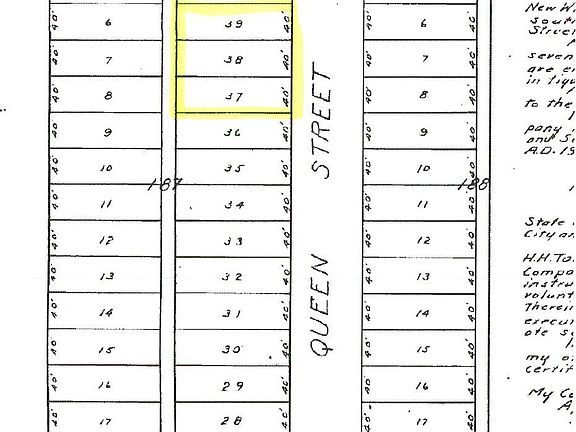 40' 6 39 40' 40' 6 40'
40' 7 38 40' 40' 7 40'
40' 8 37 40' 40' 8 40'
40' 9 36 40' 40' 9 40'
40' 10 35 40' 40' 10 40'
187 188
40' 11 34 40' 40' 11 40'
40' 12 33 40' 40' 12 40'
40' 13 32 40' 40' 13 40'
40' 14 31 40' 40' 14 40'
40' 15 30 40' 40' 15 40'
40' 16 29 40' 40' 16 40'
40' 17 28 40' 40' 17 40'
QUEEN STREET
New Wi
sout
Stree
seven
are en
in figu
to the
pany
and Su
A.D. 19
State
City an
H.H. To
Compa
instru
volunt
Therein
execu
ate s
my o
certif
My Co
A